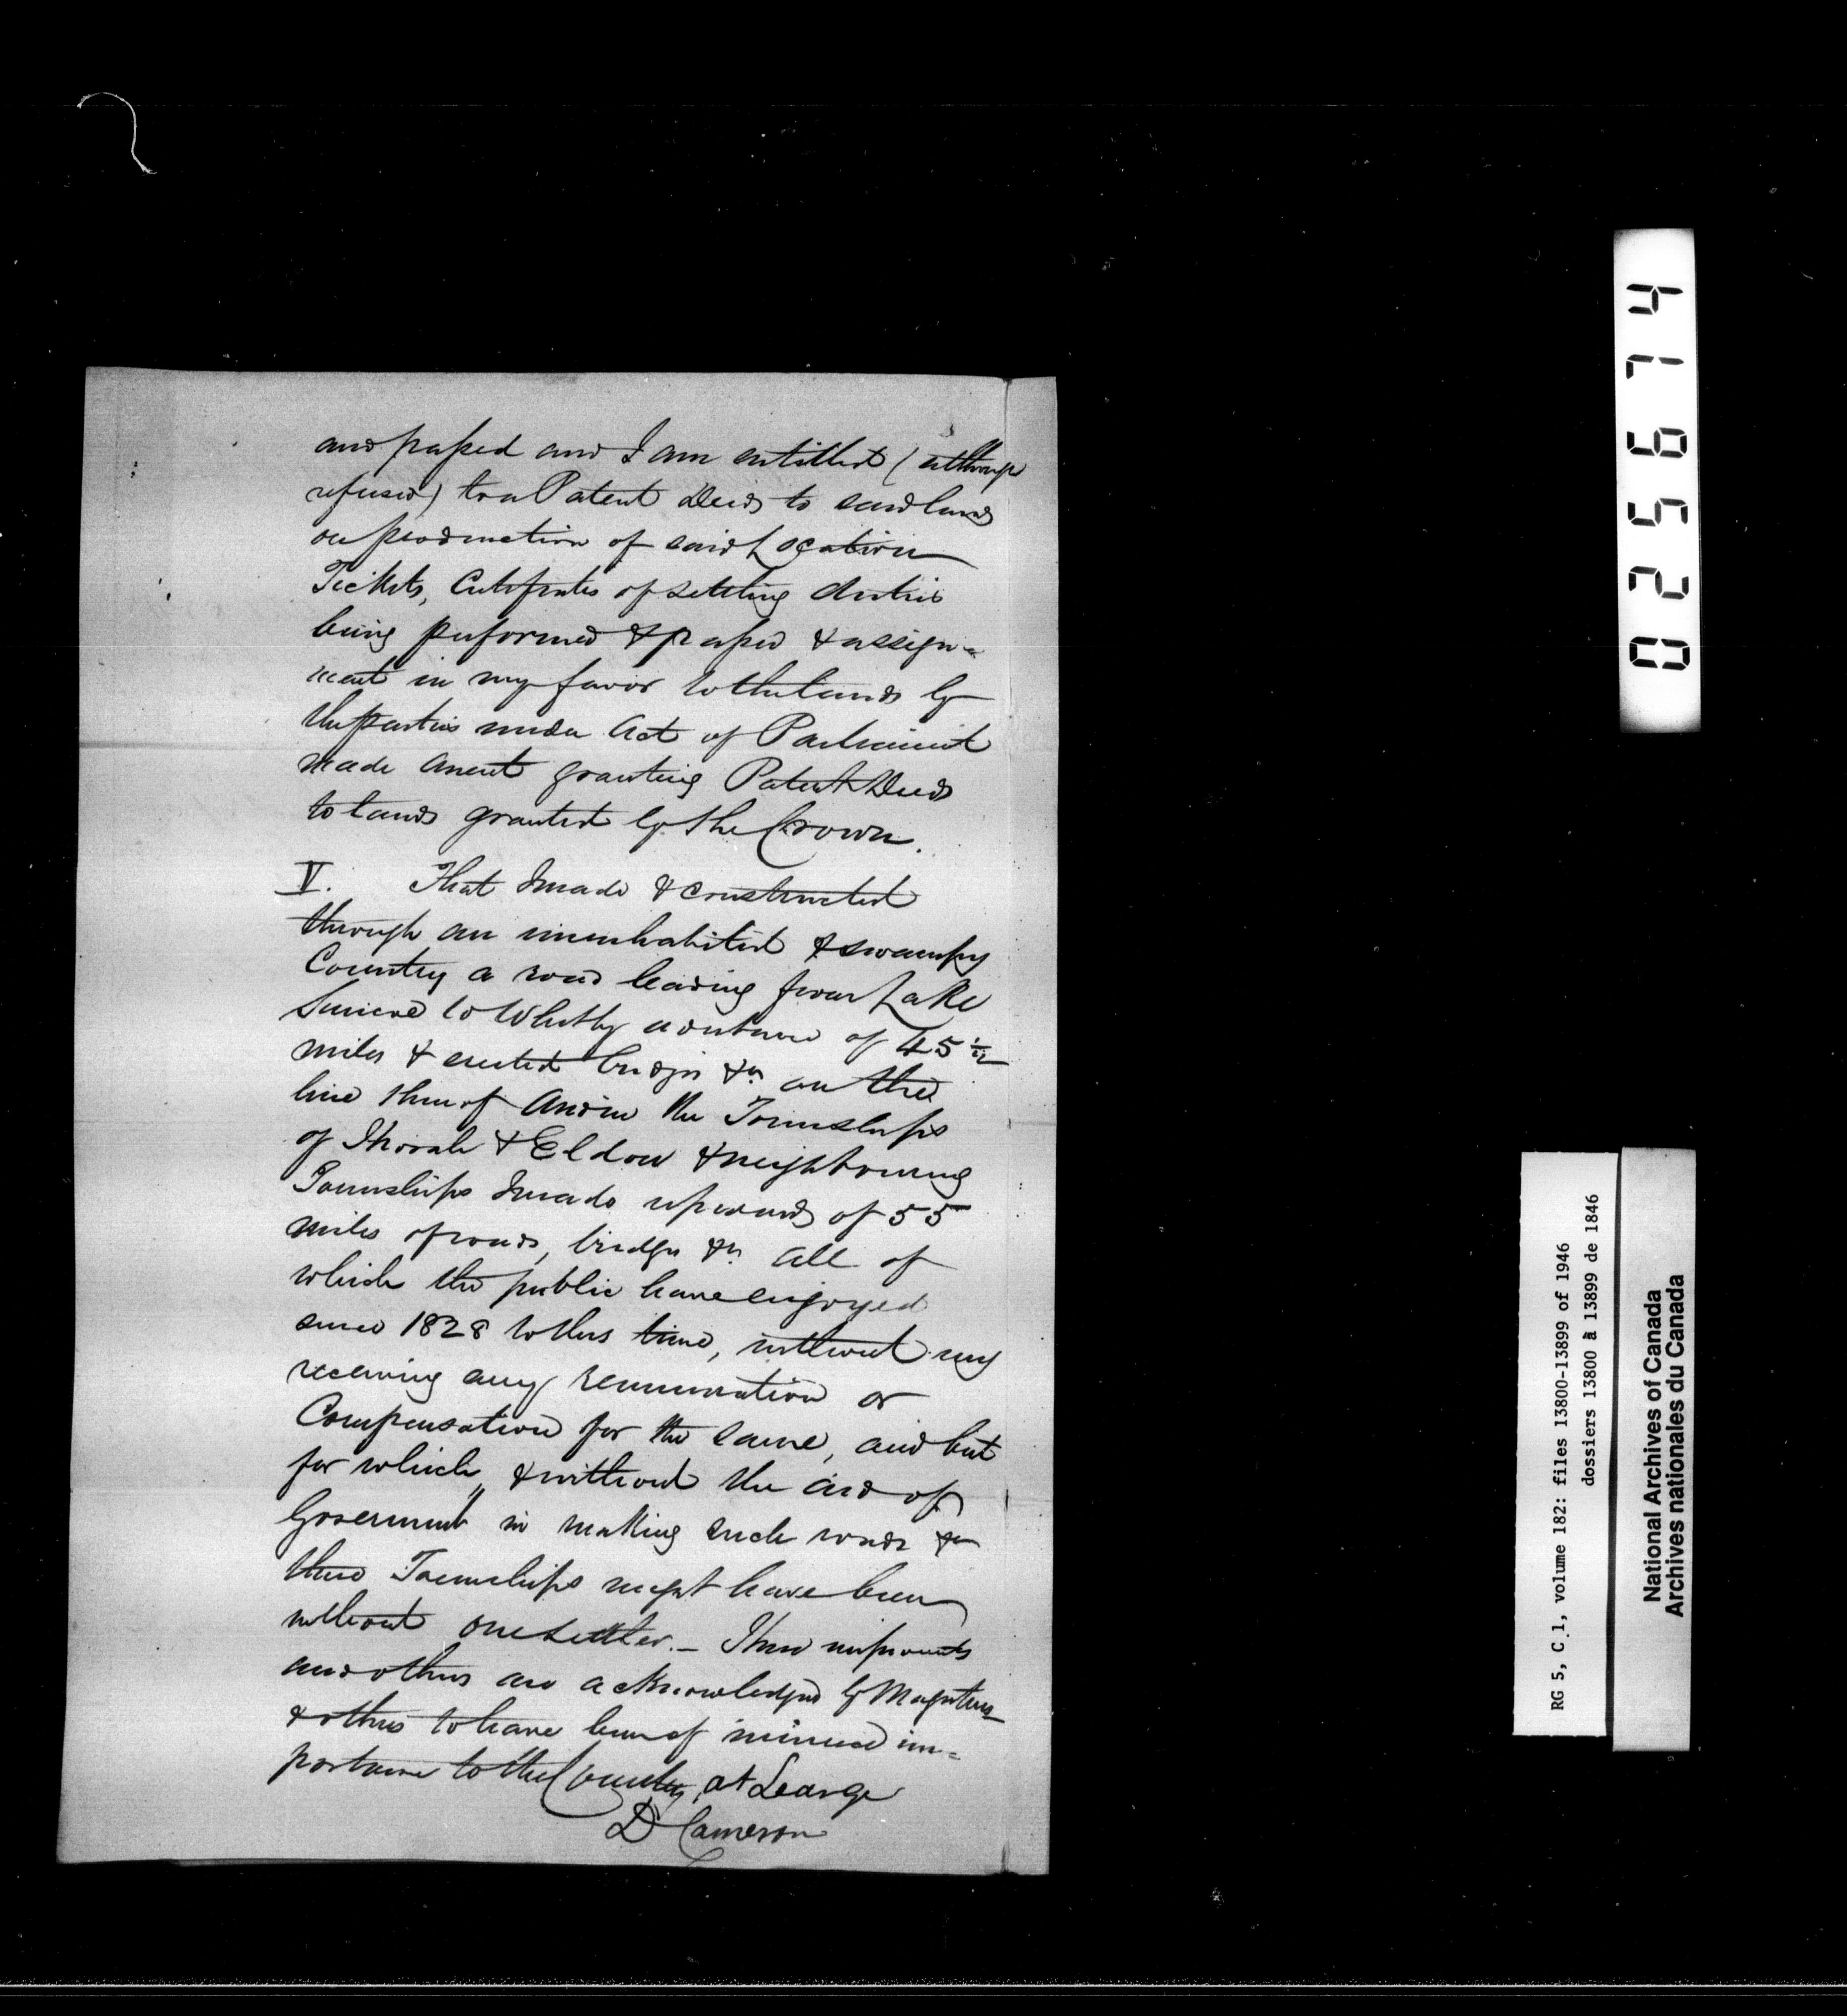 and passed and I am entitled (although
refused) to a Patent Deeds to said lands
on production of said Location
Tickets, Certificates of settling duties
being performed & passed & assign=
ment in my favor to the lands by
the parties under Act of Parliament
made anent granting Patent Deeds
to lands granted by the Crown.
V. That I made & constructed
through an uninhabited & swampy
Country a road leading from Lake
Simcoe to Whitby a distance of 45 1/2
miles & erected bridges &c on the
line thereof And in the Townships
of Thorah & Eldon & neighbouring
Townships I made upwards of 55
miles of roads, bridges &c. all of
which the public have enjoyed
since 1828 to this time, without my
receiving any remuneration or
Compensation for the same, and but
for which, & without the aid of
Government in making such roads &c
these Townships might have been
without one settler. - These improvements
and others are acknowledged by Magistrates
& others to have been of immense im=
portance to the Country, at Learge
D Cameron
025674
RG 5, C 1, volume 182: files 13800-13899 of 1946
dossiers 13800 à 13899 de 1846
National Archives of Canada
Archives nationales du Canada